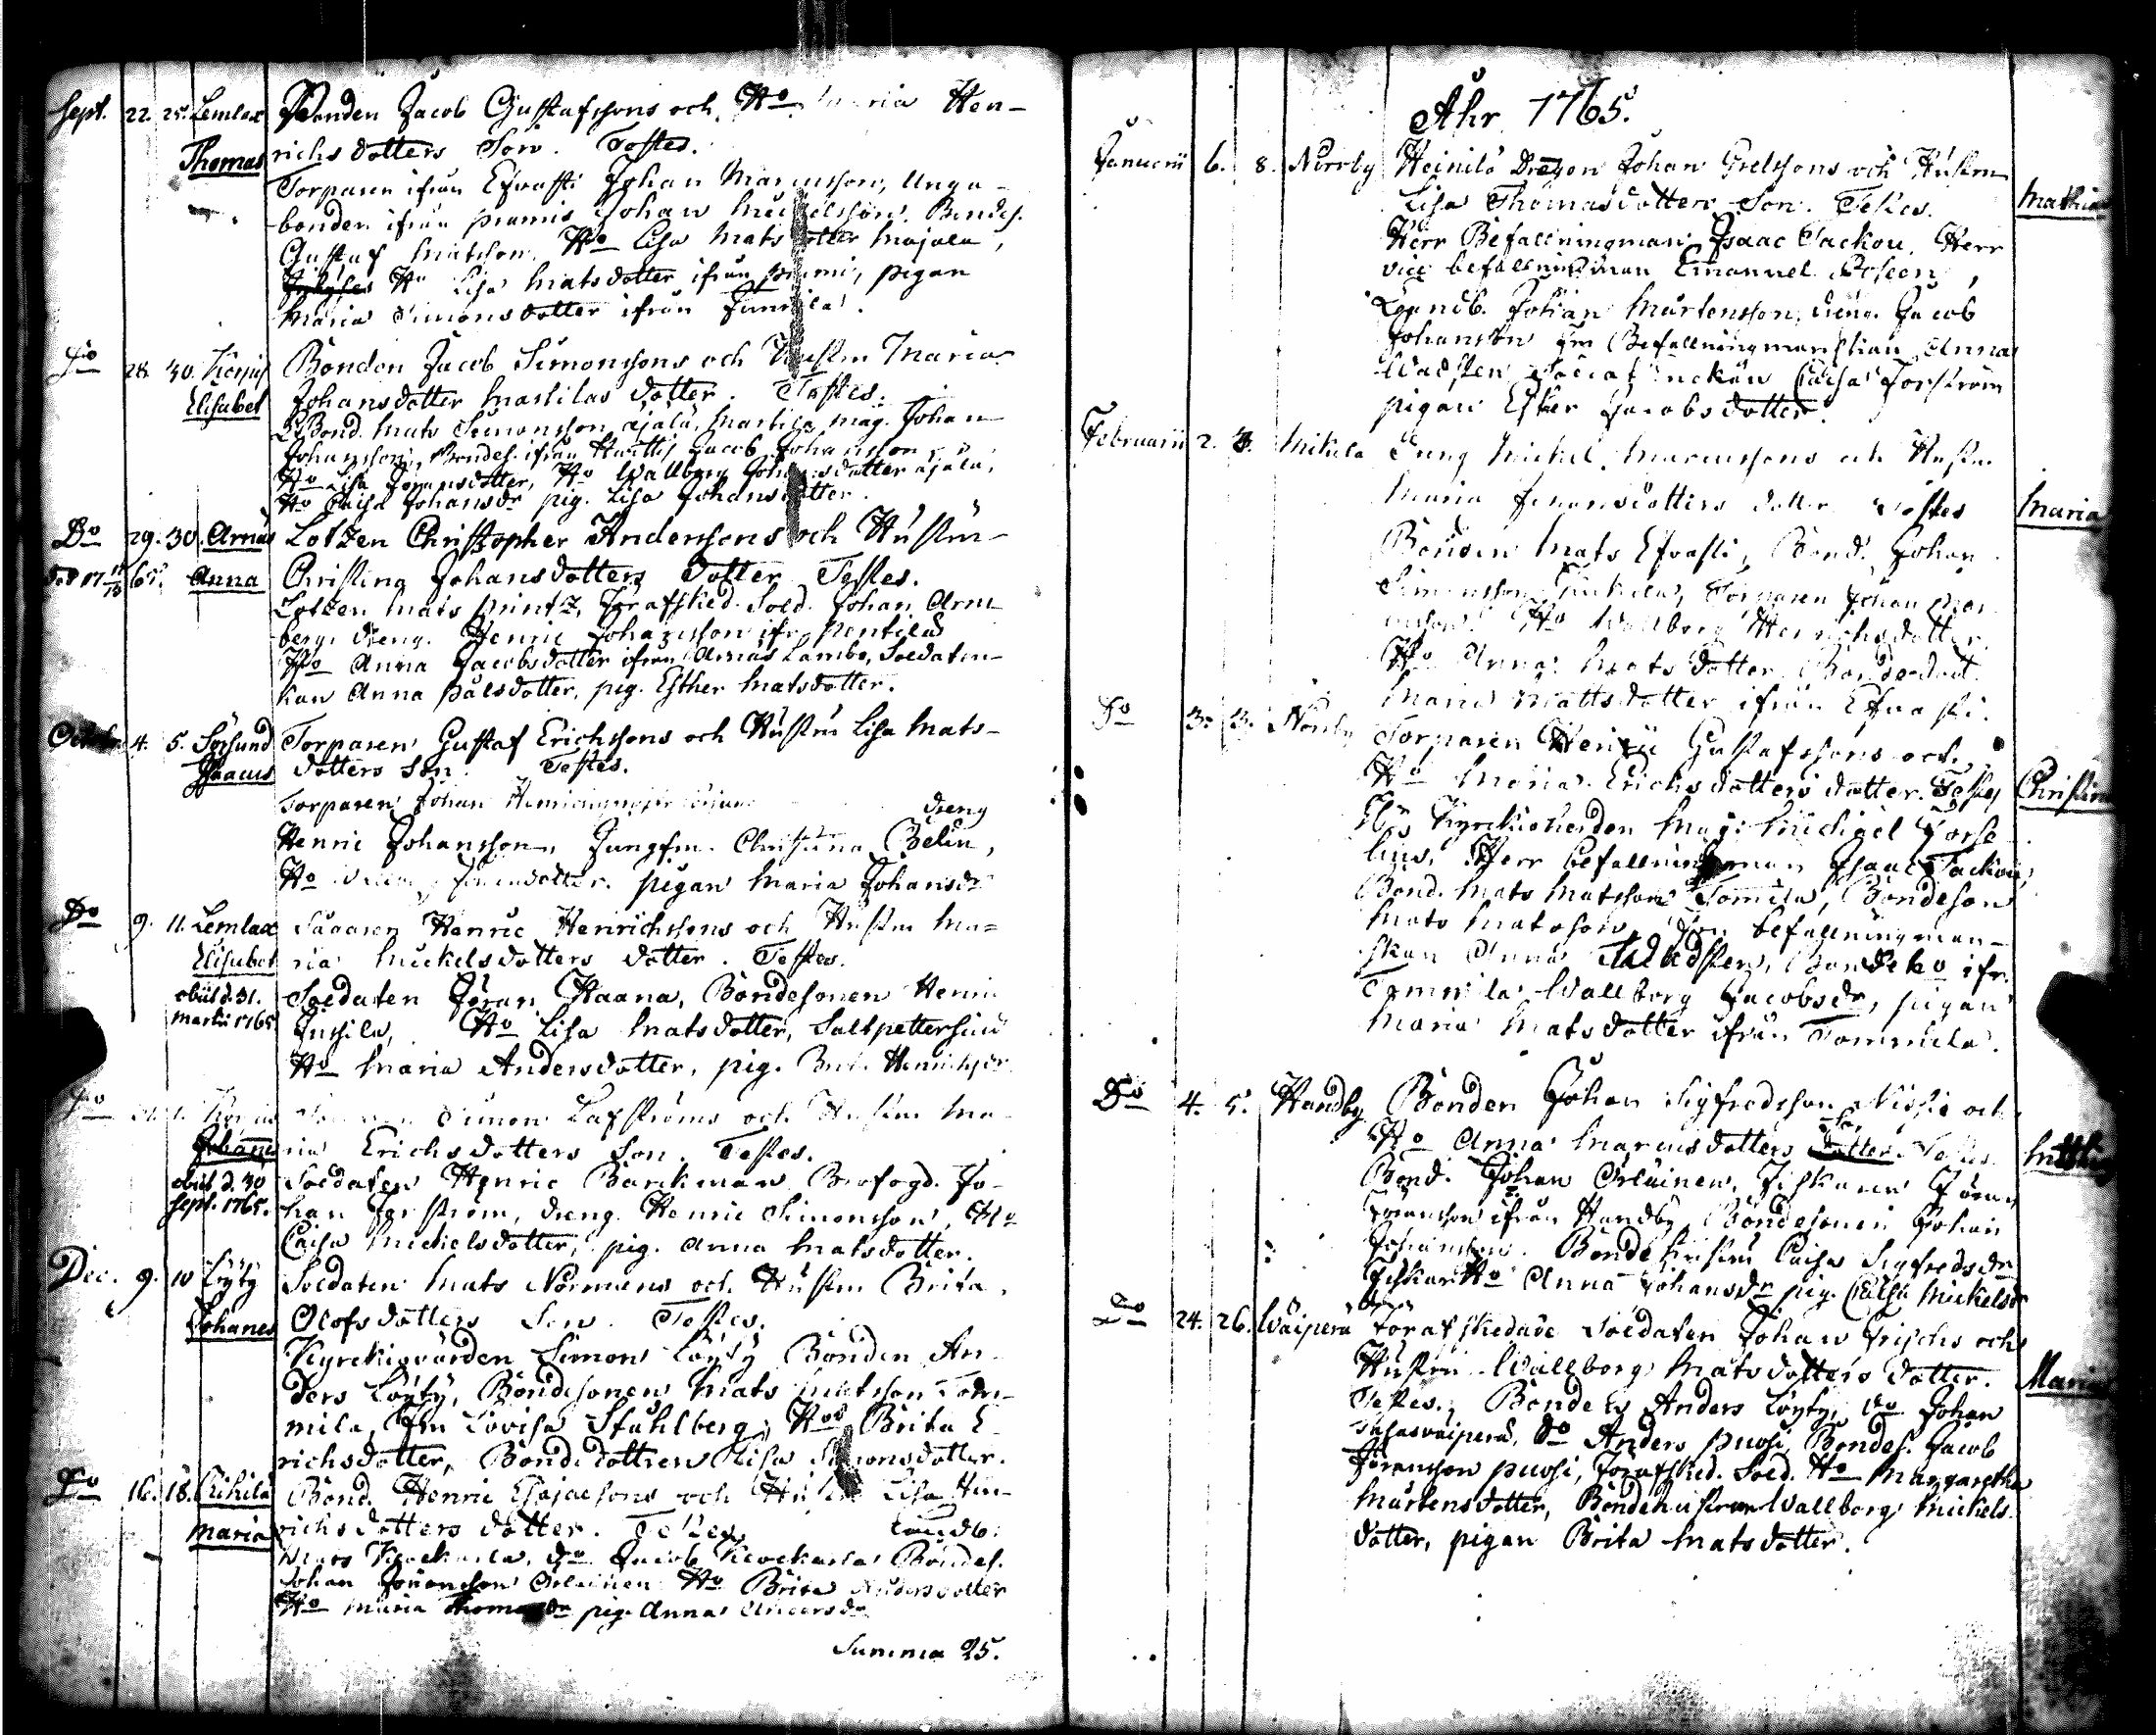 Sept. 22. 25. Lemlax Bonden Jacob Gustafssons och Ho Maria Hen-
Thomas richsdotters Son. Testes.
Torparen ifrån Efvasti Johan Marcusson, Unga
bonden ifrån prami Johan Mickelsson. Bondes.
Gustaf Matsson. Ho Lisa Matsdotter Majala,
Ho Lisa Matsdotter ifrån prami, pigan
Maria Simonsdotter ifrån
Do 28. 30. Korpis Bonden Jacob Simonssons och Hustru Maria
Elisabet Johansdotter Markilas dotter. Testes.
Bond. Mats Simonsson äjälä, Markila mag. Johan
Johansson, Bondes. ifrån Jacob Johansson,
Ho Lisa Göransdotter, Ho Wallborg Johansdotter äjälä,
Ho Caisa Johansdr pig. Lisa Johansdotter.
Do 29. 30. Arnäs Lotzen Christopher Anderssons och Hustru
65. Anna Christina Johansdotters dotter Testes.
Lotzen Mats printz, Förafsked. Sold. Johan Arn-
berg, dreng. Henric Johansson ifr. Pentilä
Ho Anna Jacobsdotter ifrån Arnäs Lambo, Soldaten-
kan Anna Pålsdotter, pig. Esther Matsdotter.
October 4. 5. Sörsund Torparen Gustaf Erichssons och Hustru Lisa Mats-
Isaacus dotters Son. Testes.
Torparen Johan dreng
Henric Johansson, Jungfru Christina Belin,
Ho pigan Maria Johansdr
Do 9. 11. Lemlax Henric Henrichssons och Hustru Ma-
Elisabet ria Mickelsdotters dotter. Testes.
obiit d. 31. Soldaten Jöran Haana, Bondesonen Henric
Martii 1765 Jussila, Ho Lisa Matsdotter, Saltpettersiud
Ho Maria Andersdotter, pig. Henrichsdr
Do Simon Lasströms och Hustru Ma-
Johannes ria Erichsdotters Son. Testes.
obiit d. 30 Soldaten Henric Barckman Brofogd. Jo-
Sept. 1765. han Forström, dreng. Henric Simonsson, Ho
Caisa Mickelsdotter, pig. Anna Matsdotter.
Dec. 9. 10 Löyty Soldaten Mats Normans och Hustru Brita
Johanes Olofsdotters Son. Testes.
Kyrckiovärden Simon Löyty Bonden An-
ders Löyty, Bondesonen Mats Matsson Tom-
mila, Fru Lovisa Stahlberg, Ho Brita E-
richsdotter, Bondedottren Lisa Simonsdotter.
Do 16. 18. Bond. Henric Esajassons och Hustru Lisa Hin-
Maria richsdotters dotter. Testes. Landb.
Mats Klockarla, do Jacob Klockarla Bondes.
Johan Jöransson Orlainen Ho Brita Andersdotter
Ho Maria Thomasdr pig. Anna Andersdr
Summa 25.
Åhr 1765.
Januarii 6. 8. Norrby Heinilä Dragon Johan Grelssons och Hustru
Lisa Thomasdotters Son. Testes. Mathias
Herr Befallningman Isaac Tackou, Herr
vice befallningman Emanuel Poleen,
Landb. Johan Mårtensson, dreng. Jacob
Johansson Fru Befallningmanskan Anna
Wadsten Caisa Forström
pigan Ester Jacobsdotter.
Februarii 2. 3. Mikula Dreng Mickel Marcussons och Hustru
Maria Simonsdotters dotter Testes Maria
Bonden Mats Efvasti, Bond. Johan
Simonsson Torparen Johan Mar-
cusson. Ho Wallborg Henrichsdotter
Ho Anna Matsdotter Bondedott.
Maria Mattsdotter ifrån Efvasti.
Do 3. 3. Norrby Torparen Henric Gustafssons och
Ho Maria Erichsdotters dotter. Testes Christina
Kyrckioherden Mag. Michael Forse-
lius, Herr befallningman Isaac Tackou,
Bond. Mats Matsson Tomila, Bondeson
Mats Matsson, Fru befallningman-
skan Anna Wadsten, Bondeho ifr.
Tammila Wallborg Jacobsdr, pigan
Maria Matsdotter ifrån Tommila.
Do 4. 5. Handby Bonden Johan Sigfredsson och
Ho Anna Marcusdotters dotter Testes
Bond. Johan Orlainen, Fiskaren Jöran
Jöransson ifrån Handby Bondesonen Johan
Johansson. Bondehustru Caisa Sigfredsdr
Fiskar Ho Anna Johansdr pig. Caisa Mickelsdr
Do 24. 26. Wäiperä förafskedade Soldaten Johan Frischs och
Hustru Wallborg Matsdotters dotter. Maria
Testes. Bonden Anders Löyty, do Johan
Tasaswäiperä, do Anders puosi, Bondes. Jacob
Jöransson puosi, Förafsked. Sold. Ho Margaretha
Mårtensdotter, Bondehustrun Wallborg Mickels-
dotter, pigan Brita Matsdotter.